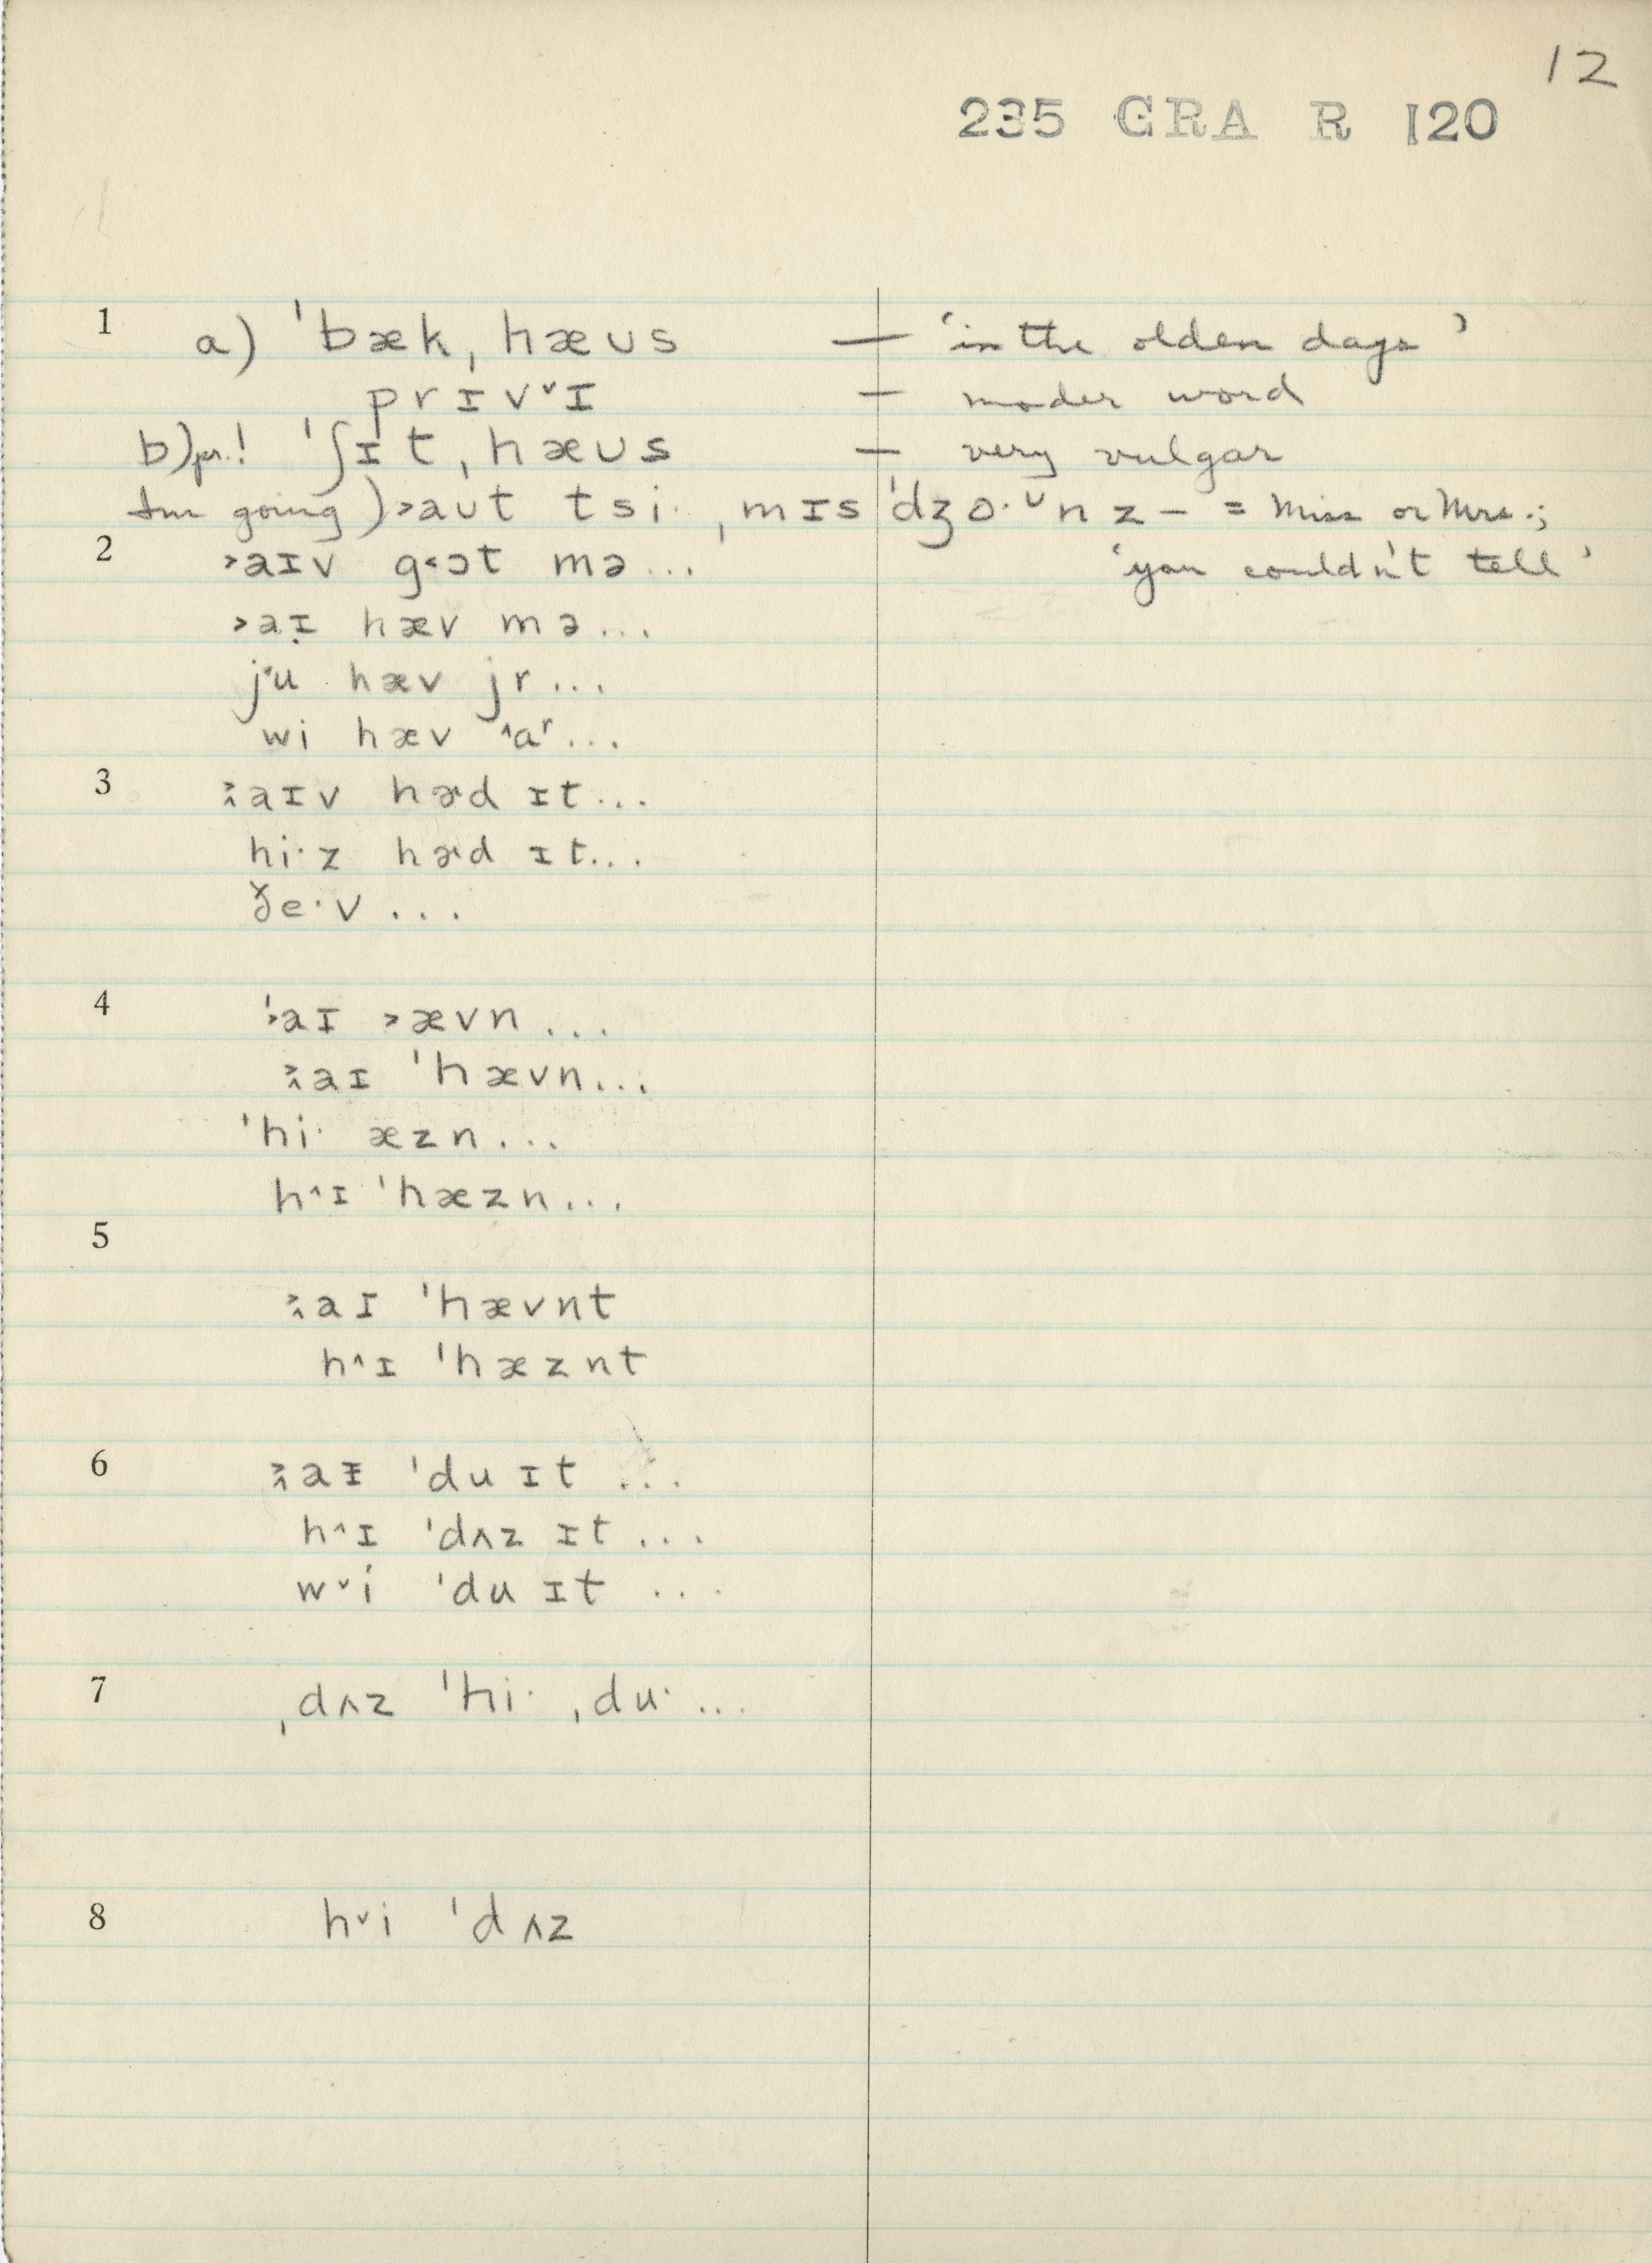 12
235 GRA R 120
1 a) ˈbæk, hæʊs — 'in the olden days'
prɪvᵛɪ — moder word
b) pr.! ˈʃɪt, hæʊs — very vulgar
I'm going) ˃aʊt tsi· ˌmɪs ˈdʒo·ᶸnz — = Miss or Mrs.;
2 ˃aɪv g˂ɔt mə... 'you couldn't tell'
˃aɪ hæv mə...
ju hæv jr...
wi hæv ˄aʳ...
3 ˃˄aɪv hɚd ɪt...
hi·z hɚd ɪt...
ðe·v...
4 ˈ˃aɪ ˃ævn...
˃˄aɪ ˈhævn...
ˈhi· æzn...
h˄ɪ ˈhæzn...
5
˃˄aɪ ˈhævnt
h˄ɪ ˈhæznt
6 ˃˄aɪ ˈdu ɪt...
h˄ɪ ˈdʌz ɪt...
w˅i ˈdu ɪt...
7 ˌdʌz ˈhi· ˌdu·...
8 h˅i ˈdʌz